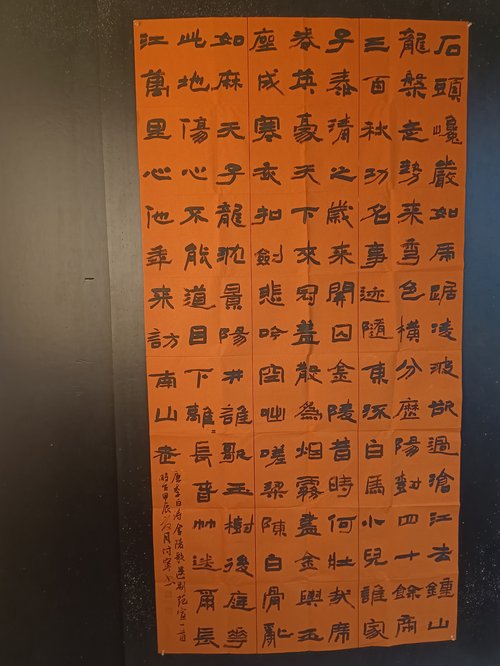 石頭巉巖如虎踞凌波欲過滄江去鍾山
龍槃走勢來秀色橫分歷陽樹四十餘帝
三百秋功名事迹隨東流白馬小兒誰家
子泰清之歲來關囚金陵昔時何壯哉席
卷英豪天下來冠蓋散為烟霧盡金輿玉
座成寒灰扣劍悲吟空咄嗟梁陳白骨亂
如麻天子龍沉景陽井誰歌玉樹後庭花
此地傷心不能道目下離〻長春草送爾長
江萬里心他年來訪南山老
唐李白詩金陵歌送别范宣一首
時在甲辰月